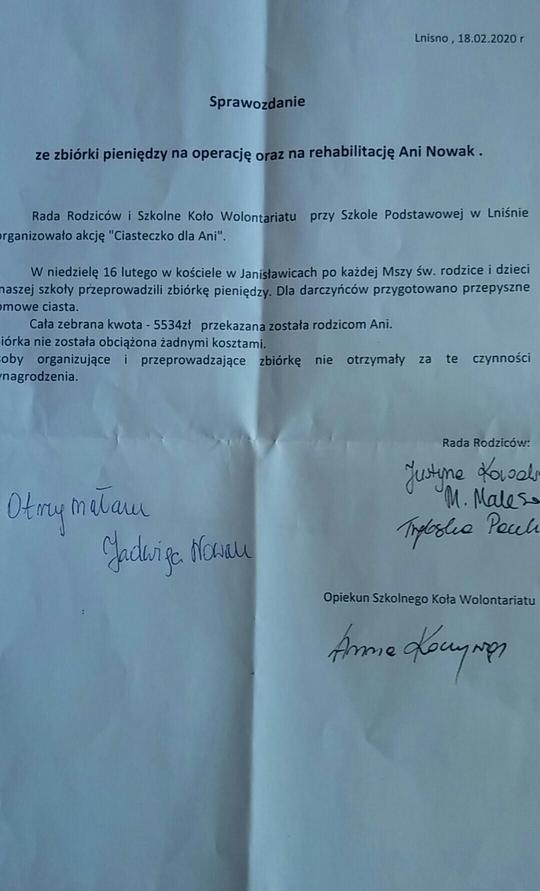 Lnisno , 18.02.2020 r
Sprawozdanie
ze zbiórki pieniędzy na operację oraz na rehabilitację Ani Nowak .
Rada Rodziców i Szkolne Koło Wolontariatu przy Szkole Podstawowej w Lniśnie
organizowało akcję "Ciasteczko dla Ani".
W niedzielę 16 lutego w kościele w Janisławicach po każdej Mszy św. rodzice i dzieci
naszej szkoły przeprowadzili zbiórkę pieniędzy. Dla darczyńców przygotowano przepyszne
omowe ciasta.
Cała zebrana kwota - 5534zł przekazana została rodzicom Ani.
iórka nie została obciążona żadnymi kosztami.
soby organizujące i przeprowadzające zbiórkę nie otrzymały za te czynności
ynagrodzenia.
Rada Rodziców:
Justyna
M. Males
Otrzymałam
Jadwiga Nowak
Opiekun Szkolnego Koła Wolontariatu
Anna